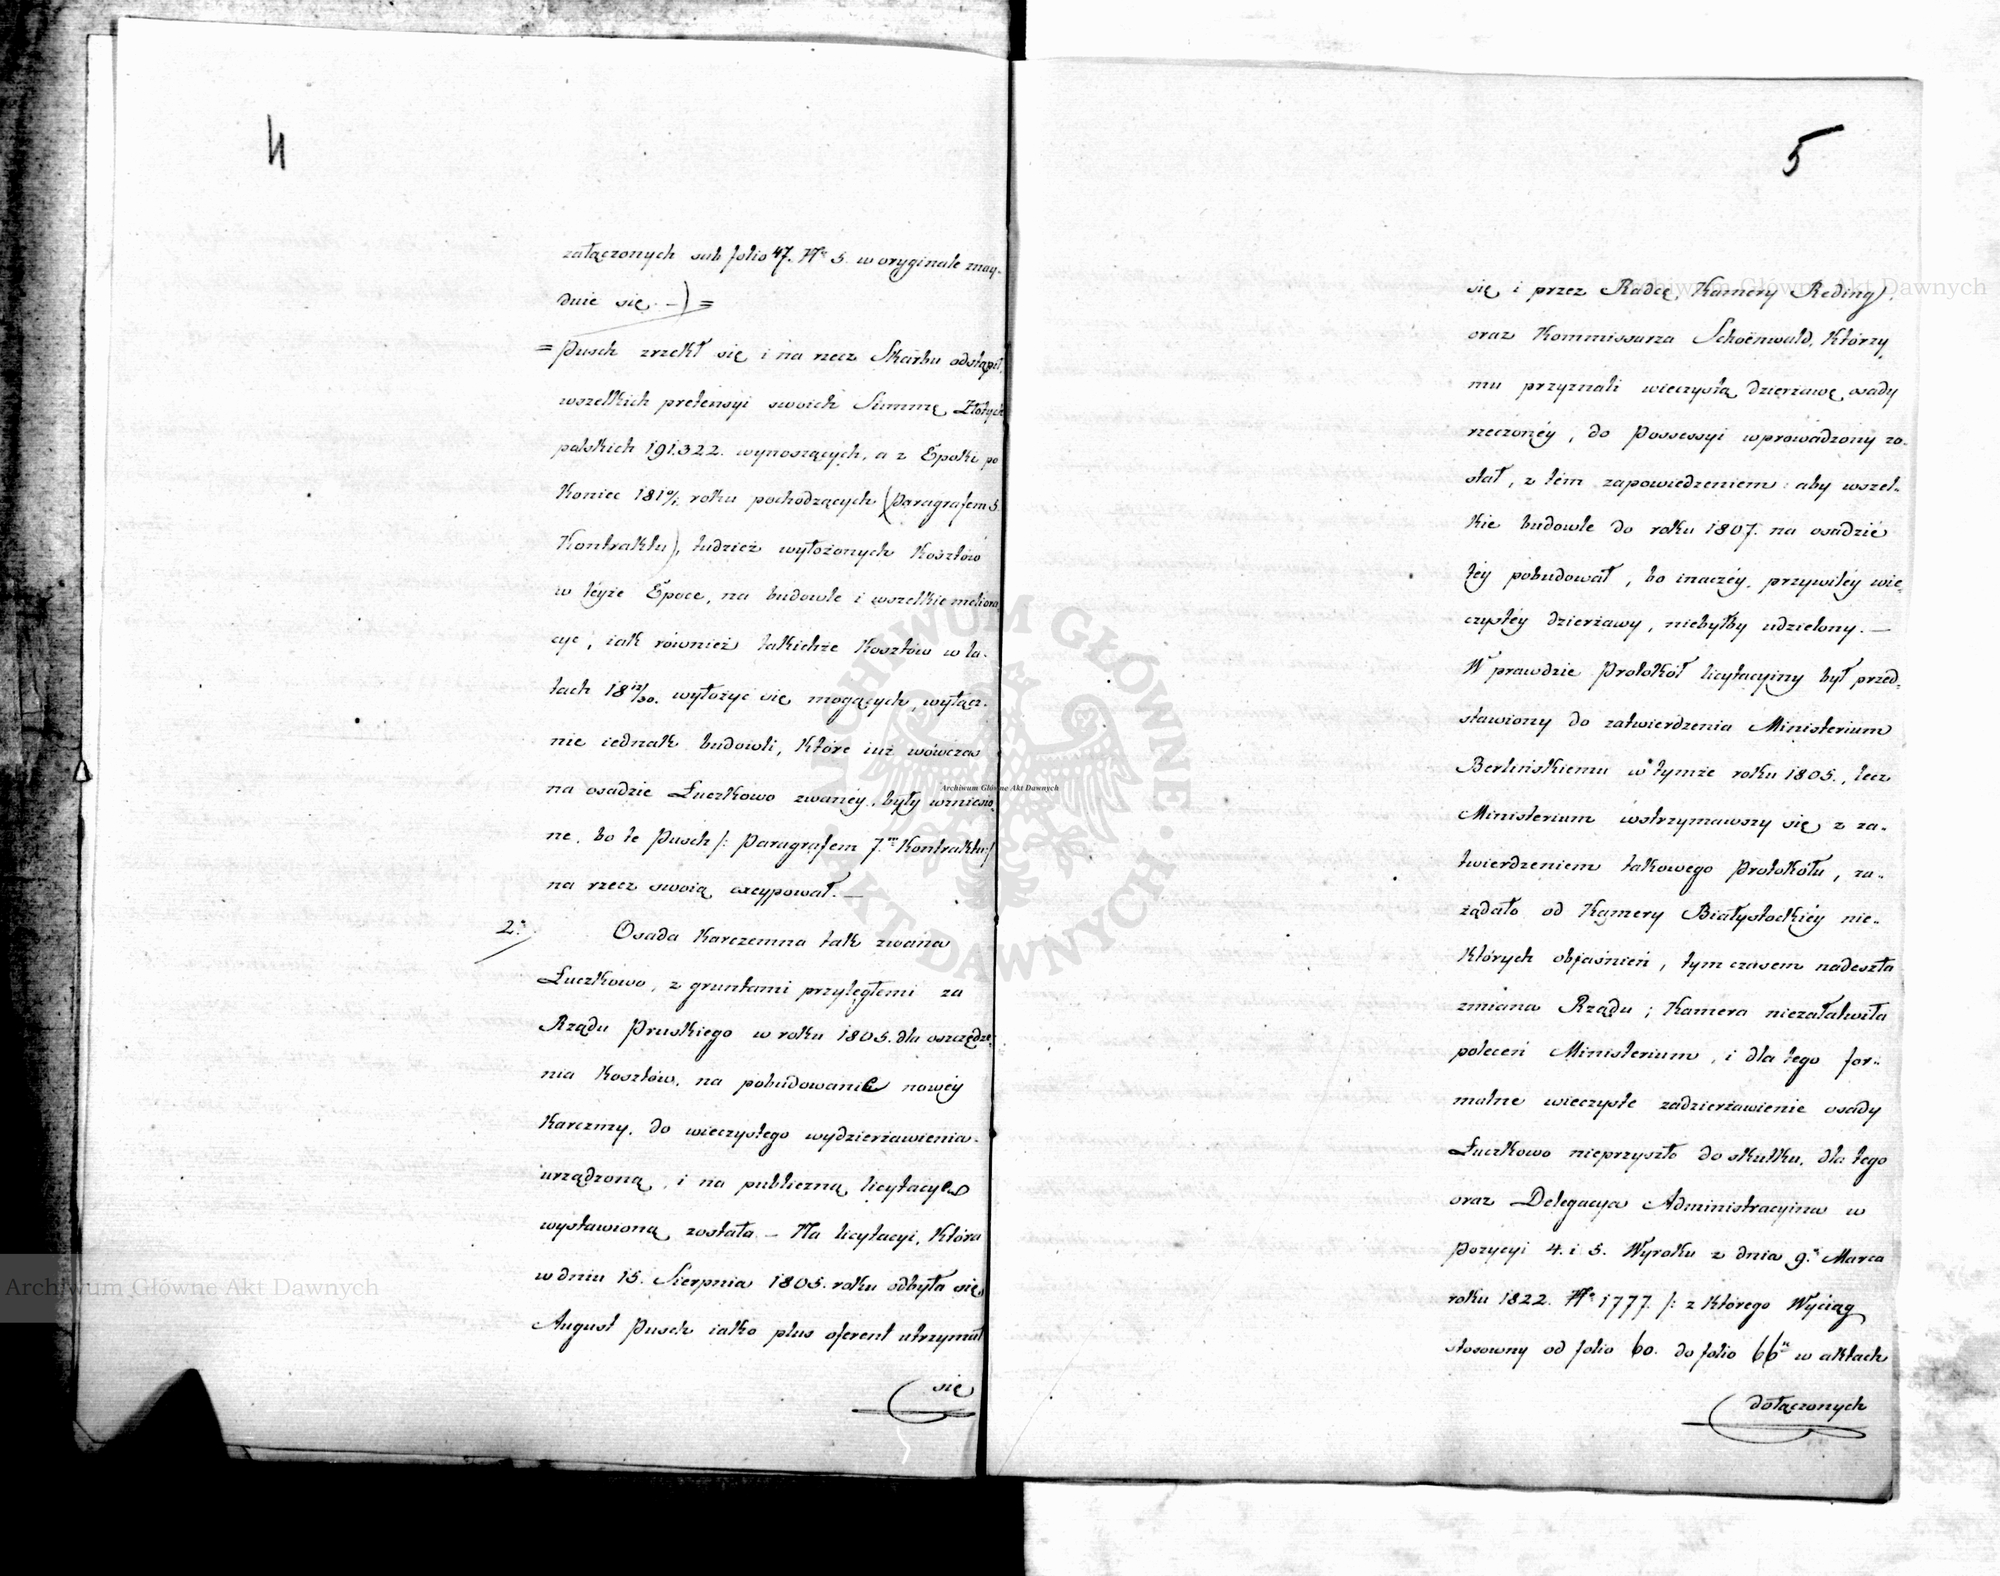 4
załączonych sub folio 47. No 5. w oryginale znay-
duie się. –) =
= Pusch zrzekł się i na rzecz Skarbu odstąpił,
wszelkich pretensyi swoich Summę Złotych
polskich 191.322. wynoszących, a z Epoki po
Koniec 181 roku pochodzących (Paragrafem 5.
Kontraktu), tudzież wyłożonych Kosztów
w téyże Epoce, na budowle i wszelkie meliora-
cye, iak również takichże Kosztów w la-
tach 18 12/30. wyłożyć się mogących, wyłącz-
nie iednak budowli, które iuż wówczas
na osadzie Łuczkowo zwanéy, były wzniesio-
ne, bo te Pusch /: Paragrafem 7.m Kontraktu :/
na rzecz swoią excypował. —
2.° Osada Karczemna tak zwana
Łuczkowo, z gruntami przyległemi za
Rządu Pruskiego w roku 1805. dla oszczędze-
nia Kosztów, na pobudowanie nowéy
Karczmy, do wieczystego wydzierżawienia
urządzoną, i na publiczną licytacyę
wystawioną została – Na licytacyi, która
w dniu 15. Sierpnia 1805. roku odbyła się
August Pusch iako plus oferent utrzymał
się
5
się i przez Radcę Kamery Reding,
oraz Kommissarza Schoënwald, którzy
mu przyznali wieczystą dzierżawę osady
rzeczonéy, do Possessyi wprowadzony zo-
stał, z tém zapowiedzeniem: aby wszel-
kie budowle do roku 1807. na osadzie
téy pobudował, bo inaczéy, przywiléy wie-
czystéy dzierżawy, niebyłby udzielony. —
W prawdzie Protokół licytacyiny był przed-
stawiony do zatwierdzenia Ministerium
Berlińskiemu w tymże roku 1805., lecz
Ministerium wstrzymawszy się z za-
twierdzeniem takowego Protokółu, za-
żądało od Kamery Białystockiéy nie-
których objaśnień, tym czasem nadeszła
zmiana Rządu; Kamera niezałatwiła
poleceń Ministerium, i dla tego for-
malne wieczyste zadzierżawienie osady
Łuczkowo nieprzyszło do skutku, dla tego
oraz Delegacya Administracyina w
Pozycyi 4. i 5. Wyroku z dnia 9.° Marca
roku 1822. No 1777. /: z którego Wyciąg
stosowny od folio 60. do folio 66 w aktach
dołączonych